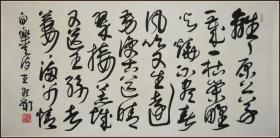 離々原上草
一歲一枯榮野
火燒不盡春
風吹又生遠
芳侵古道晴
翠接荒城
又送王孫去
萋々滿別情
白樂天詩